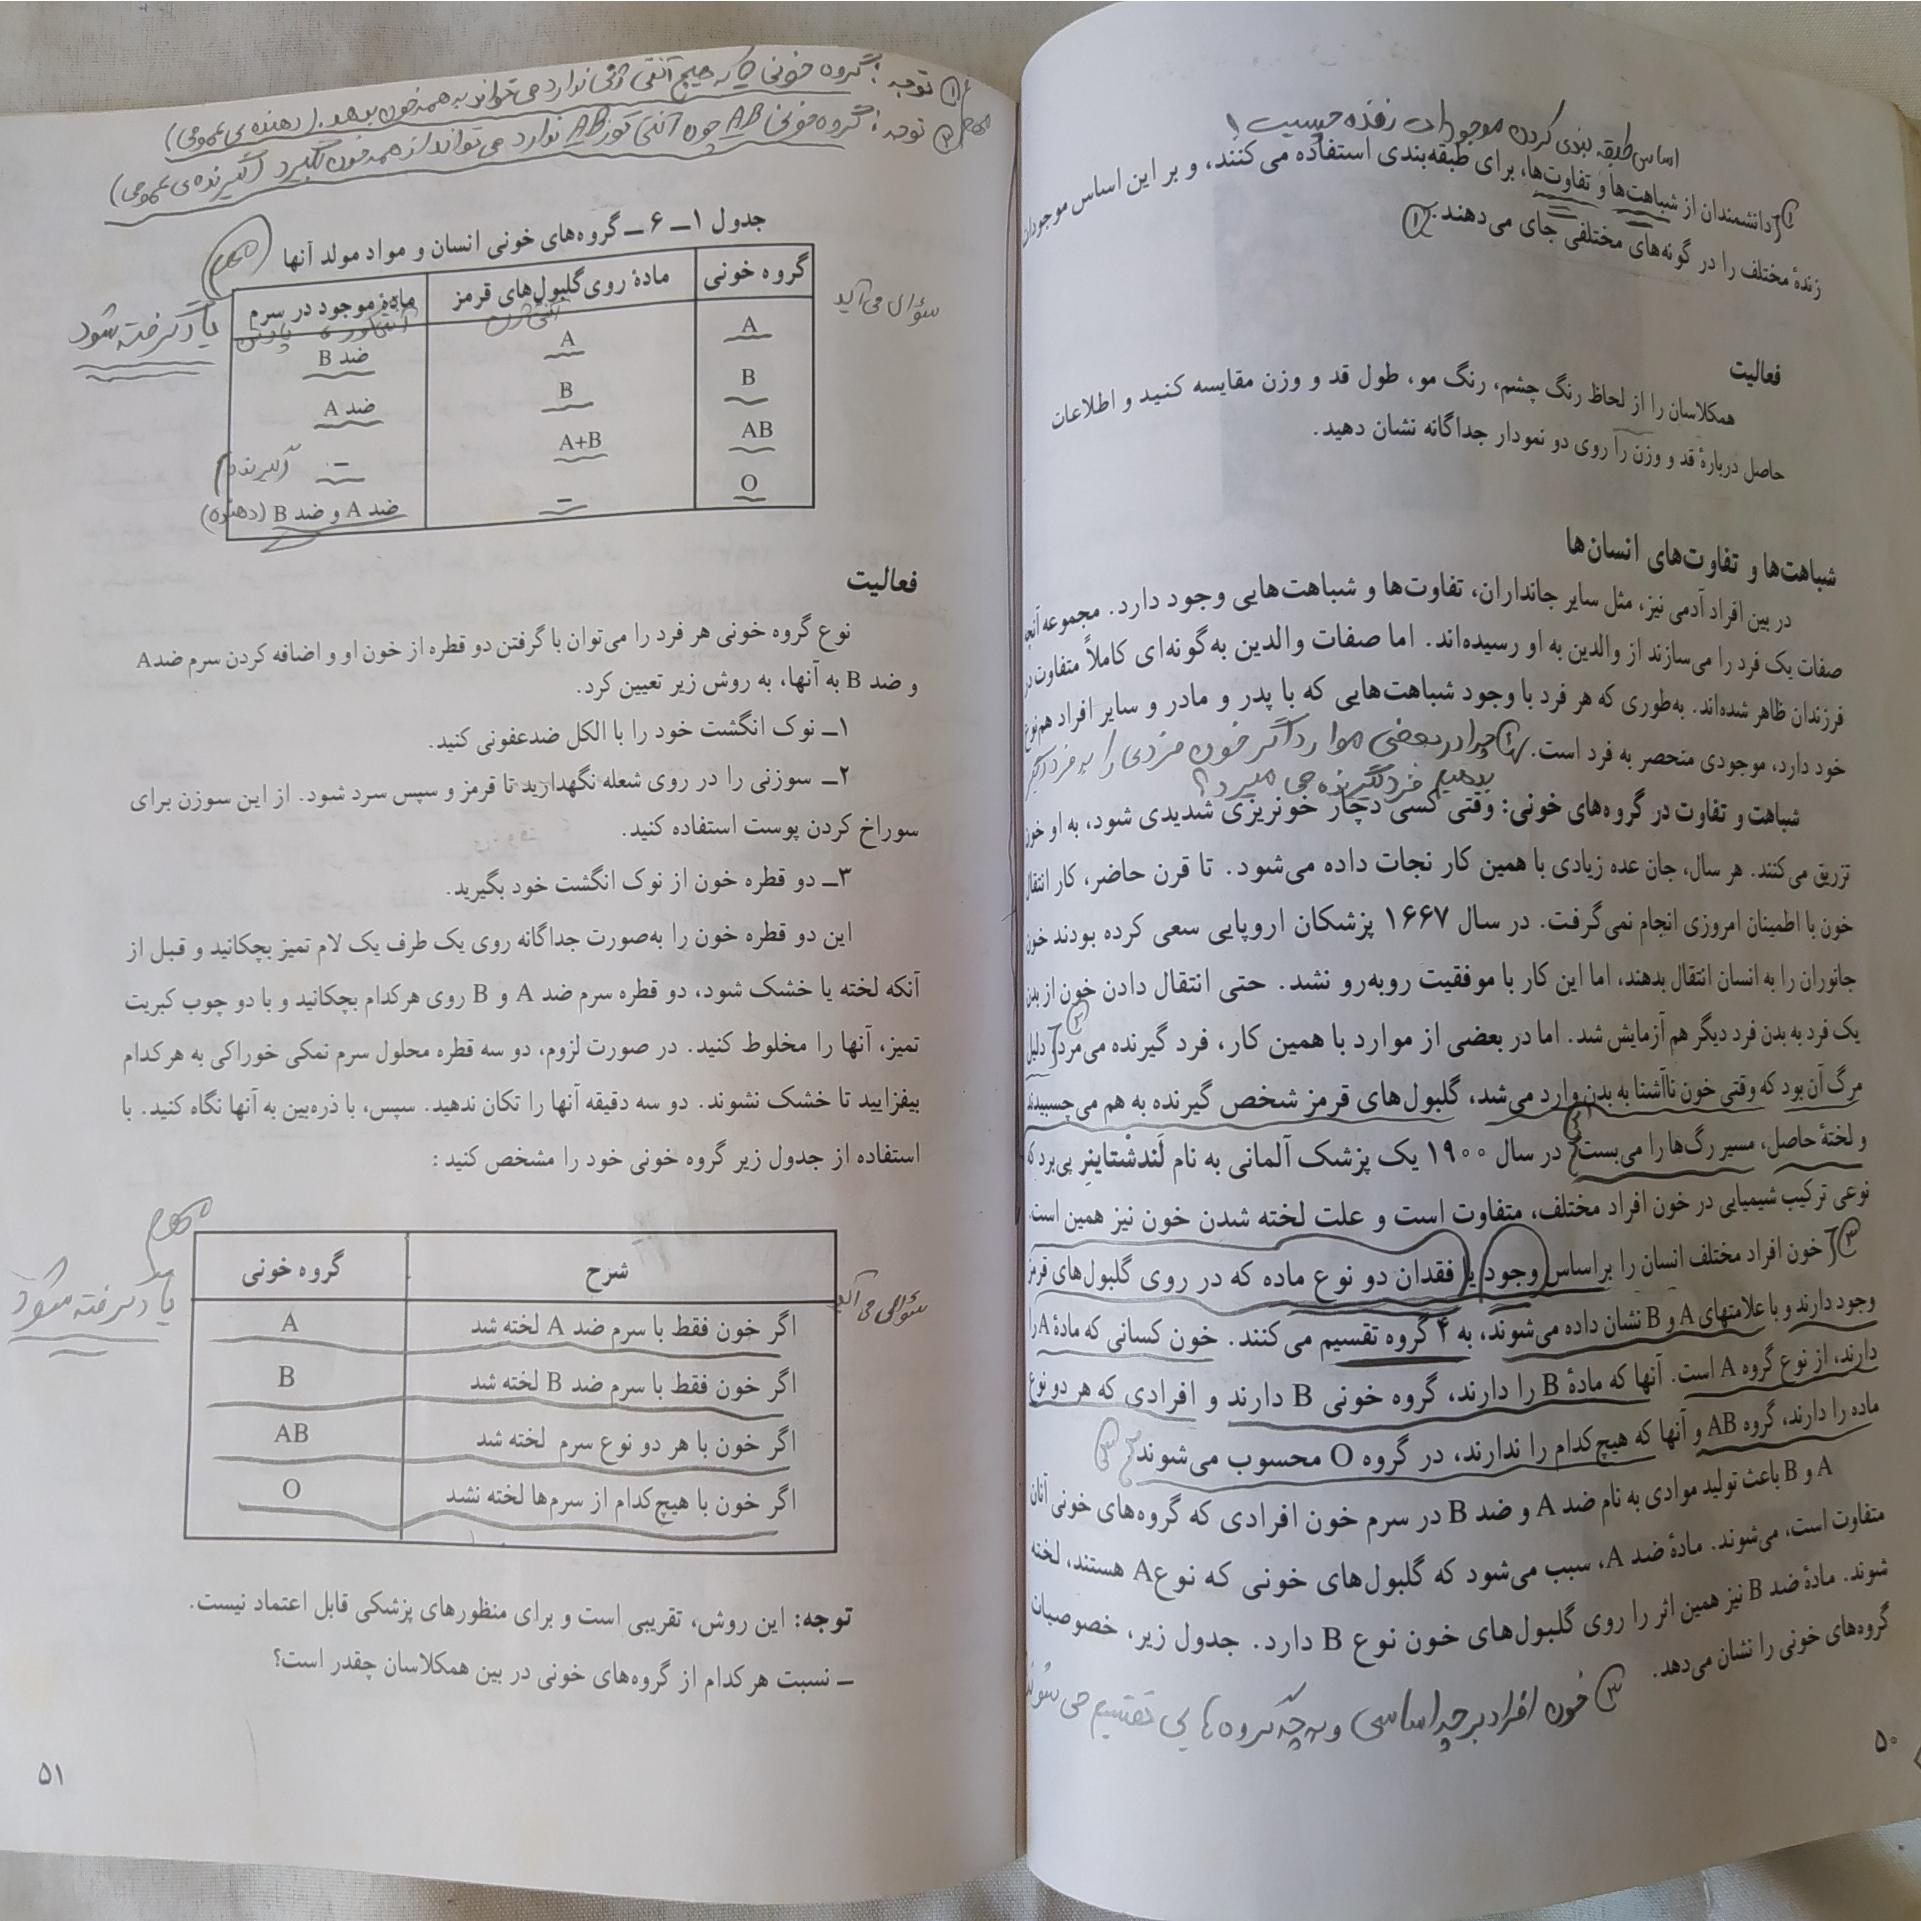 اساس طبقه بندی کردن موجودات زنده چیست؟
۱) دانشمندان از شباهت‌ها و تفاوت‌ها، برای طبقه‌بندی استفاده می‌کنند، و بر این اساس موجودات
زندهٔ مختلف را در گونه‌های مختلفی جای می‌دهند. (۱
فعالیت
همکلاسان را از لحاظ رنگ چشم، رنگ مو، طول قد و وزن مقایسه کنید و اطلاعات
حاصل دربارهٔ قد و وزن را روی دو نمودار جداگانه نشان دهید.
شباهت‌ها و تفاوت‌های انسان‌ها
در بین افراد آدمی نیز، مثل سایر جانداران، تفاوت‌ها و شباهت‌هایی وجود دارد. مجموعه آنچه
صفات یک فرد را می‌سازند از والدین به او رسیده‌اند. اما صفات والدین به‌گونه‌ای کاملاً متفاوت در
فرزندان ظاهر شده‌اند. به‌طوری که هر فرد با وجود شباهت‌هایی که با پدر و مادر و سایر افراد هم‌نوع
خود دارد، موجودی منحصر به فرد است. چرا در بعضی موارد اگر خون فردی را به فرد دیگر
بدهیم فرد گیرنده می میرد؟
شباهت و تفاوت در گروه‌های خونی: وقتی کسی دچار خونریزی شدیدی شود، به او خون
تزریق می‌کنند. هر سال، جان عده زیادی با همین کار نجات داده می‌شود. تا قرن حاضر، کار انتقال
خون با اطمینان امروزی انجام نمی‌گرفت. در سال ۱۶۶۷ پزشکان اروپایی سعی کرده بودند خون
جانوران را به انسان انتقال بدهند، اما این کار با موفقیت روبه‌رو نشد. حتی انتقال دادن خون از بدن
یک فرد به بدن فرد دیگر هم آزمایش شد. اما در بعضی از موارد با همین کار، فرد گیرنده می‌مرد. (۲ دلیل
مرگ آن بود که وقتی خون ناآشنا به بدن وارد می‌شد، گلبول‌های قرمز شخص گیرنده به هم می‌چسبیدند
و لختهٔ حاصل، مسیر رگ‌ها را می‌بست. در سال ۱۹۰۰ یک پزشک آلمانی به نام لَندشْتاینر پی‌برد که
نوعی ترکیب شیمیایی در خون افراد مختلف، متفاوت است و علت لخته شدن خون نیز همین است.
۳) خون افراد مختلف انسان را براساس وجود یا فقدان دو نوع ماده که در روی گلبول‌های قرمز
وجود دارند و با علامتهای A و B نشان داده می‌شوند، به ۴ گروه تقسیم می‌کنند. خون کسانی که مادهٔ A را
دارند، از نوع گروه A است. آنها که مادهٔ B را دارند، گروه خونی B دارند و افرادی که هر دو نوع
ماده را دارند، گروه AB و آنها که هیچ‌کدام را ندارند، در گروه O محسوب می‌شوند. (۳
A و B باعث تولید موادی به نام ضد A و ضد B در سرم خون افرادی که گروه‌های خونی آنان
متفاوت است، می‌شوند. مادهٔ ضد A، سبب می‌شود که گلبول‌های خونی که نوع A هستند، لخته
شوند. مادهٔ ضد B نیز همین اثر را روی گلبول‌های خون نوع B دارد. جدول زیر، خصوصیات
گروه‌های خونی را نشان می‌دهد.
۳) خون افراد بر چه اساسی و به چه گروه هایی تقسیم می شوند
۵۰
مهم ۱) توجه: گروه خونی O که هیچ آنتی ژنی ندارد می تواند به همه خون بدهد. (دهنده ی عمومی)
۲) توجه: گروه خونی AB چون آنتی کور AB ندارد می تواند از همه خون بگیرد (گیرنده ی عمومی)
جدول ۱ــ ۶ ــ گروه‌های خونی انسان و مواد مولد آنها
مهم
یاد گرفته شود
سؤال می آید
گروه خونی مادهٔ روی گلبول‌های قرمز مادهٔ موجود در سرم
آنتی ژن
A A ضد B
B B ضد A
AB A+B – گیرنده
O – ضد A و ضد B (دهنده)
فعالیت
نوع گروه خونی هر فرد را می‌توان با گرفتن دو قطره از خون او و اضافه کردن سرم ضد A
و ضد B به آنها، به روش زیر تعیین کرد.
۱ــ نوک انگشت خود را با الکل ضدعفونی کنید.
۲ــ سوزنی را در روی شعله نگهدارید تا قرمز و سپس سرد شود. از این سوزن برای
سوراخ کردن پوست استفاده کنید.
۳ــ دو قطره خون از نوک انگشت خود بگیرید.
این دو قطره خون را به‌صورت جداگانه روی یک طرف یک لام تمیز بچکانید و قبل از
آنکه لخته یا خشک شود، دو قطره سرم ضد A و B روی هرکدام بچکانید و با دو چوب کبریت
تمیز، آنها را مخلوط کنید. در صورت لزوم، دو سه قطره محلول سرم نمکی خوراکی به هرکدام
بیفزایید تا خشک نشوند. دو سه دقیقه آنها را تکان ندهید. سپس، با ذره‌بین به آنها نگاه کنید. با
استفاده از جدول زیر گروه خونی خود را مشخص کنید :
مهم
یاد گرفته شود
سؤال می آید
شرح گروه خونی
اگر خون فقط با سرم ضد A لخته شد A
اگر خون فقط با سرم ضد B لخته شد B
اگر خون با هر دو نوع سرم لخته شد AB
اگر خون با هیچ‌کدام از سرم‌ها لخته نشد O
توجه: این روش، تقریبی است و برای منظورهای پزشکی قابل اعتماد نیست.
ــ نسبت هرکدام از گروه‌های خونی در بین همکلاسان چقدر است؟
۵۱